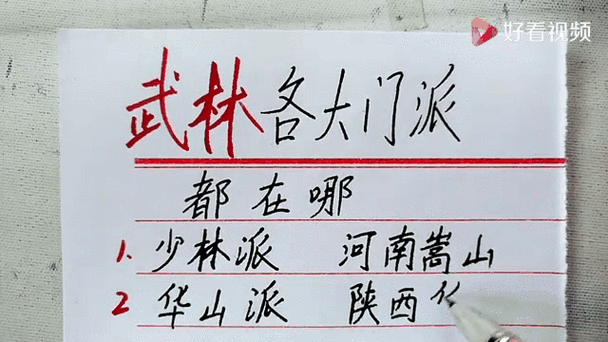 好看视频
武林各大门派
都在哪
1. 少林派 河南嵩山
2 华山派 陕西